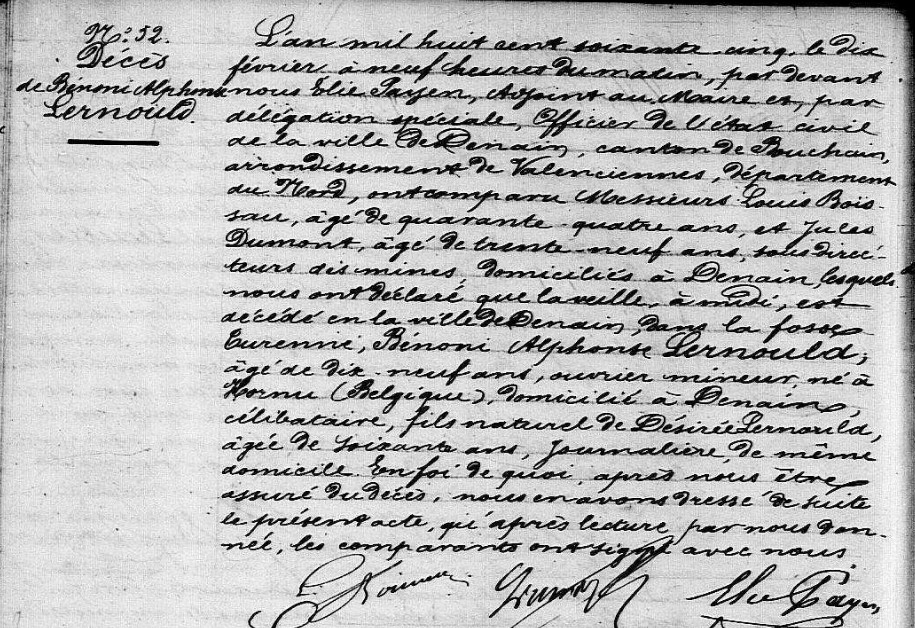 N.º 52.
Décès
de Bénoni Alphonse
Lernould.
L'an mil huit cent soixante cinq, le dix
février à neuf heures du matin, par devant
nous Elie Payen, Adjoint au Maire et, par
délégation spéciale, Officier de l'état civil
de la ville de Denain, canton de Bouchain,
arrondissement de Valenciennes, département
du Nord, ont comparu Messieurs Louis Bois-
sau, âgé de quarante-quatre ans, et Jules
Dumont, âgé de trente-neuf ans, sous direc-
teurs des mines, domiciliés à Denain, lesquels
nous ont déclaré que la veille, à midi, est
décédé en la ville de Denain, dans la fosse
Turenne, Bénoni Alphonse Lernould,
âgé de dix-neuf ans, ouvrier mineur, né à
Hornu (Belgique), domicilié à Denain,
célibataire, fils naturel de Désirée Lernould,
âgée de soixante ans, journalière, de même
domicile. En foi de quoi, après nous être
assuré du décès, nous en avons dressé de suite
le présent acte, qu'après lecture par nous don-
née, les comparants ont signé avec nous
Elie Payen